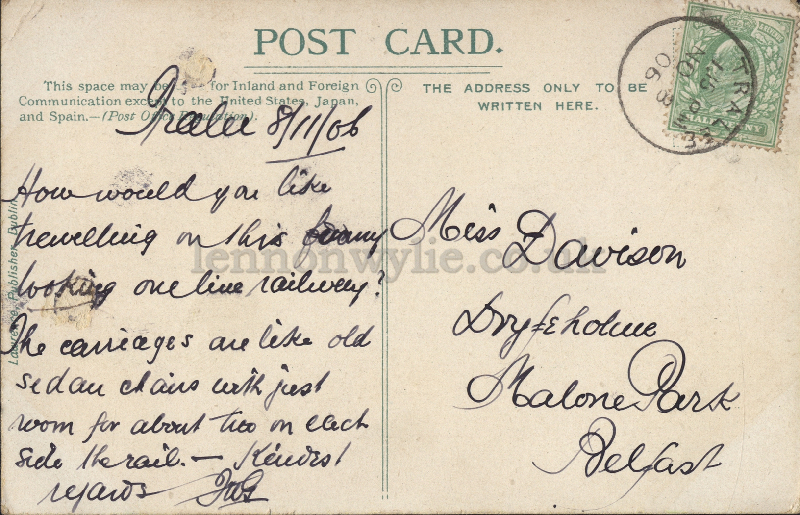 POST CARD.
This space may be for Inland and Foreign
Communication except to the United States, Japan,
and Spain.—(Post Office Regulation).
THE ADDRESS ONLY TO BE
WRITTEN HERE.
Tralee 8/11/06
How would you like
travelling on this funny
looking one line railway?
The carriages are like old
sedan chairs with just
room for about two on each
side the rail. — Kindest
regards
Miss Davison
Dryfeholme
Malone Park
Belfast
Lawrence, Publisher, Dublin
TRALEE
NO 8
06
HALFPENNY
lennonwylie.co.uk